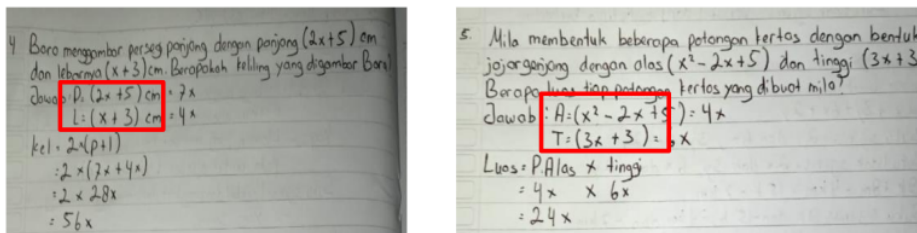 4 Bara menggambar persegi panjang dengan panjang (2x+5) cm
dan lebarnya (x+3) cm. Berapakah keliling yang digambar Bara?
Jawab: P = (2x+5) cm = 7x
L = (x+3) cm = 4x
kel = 2×(p+l)
= 2×(7x+4x)
= 2×28x
= 56x
5. Mila membentuk beberapa potongan kertas dengan bentuk
jajargenjang dengan alas (x²-2x+5) dan tinggi (3x+3
Berapa luas tiap potongan kertas yang dibuat mila?
Jawab: A=(x²-2x+5)=4x
T=(3x+3)=6x
Luas = P.Alas × tinggi
= 4x × 6x
= 24x